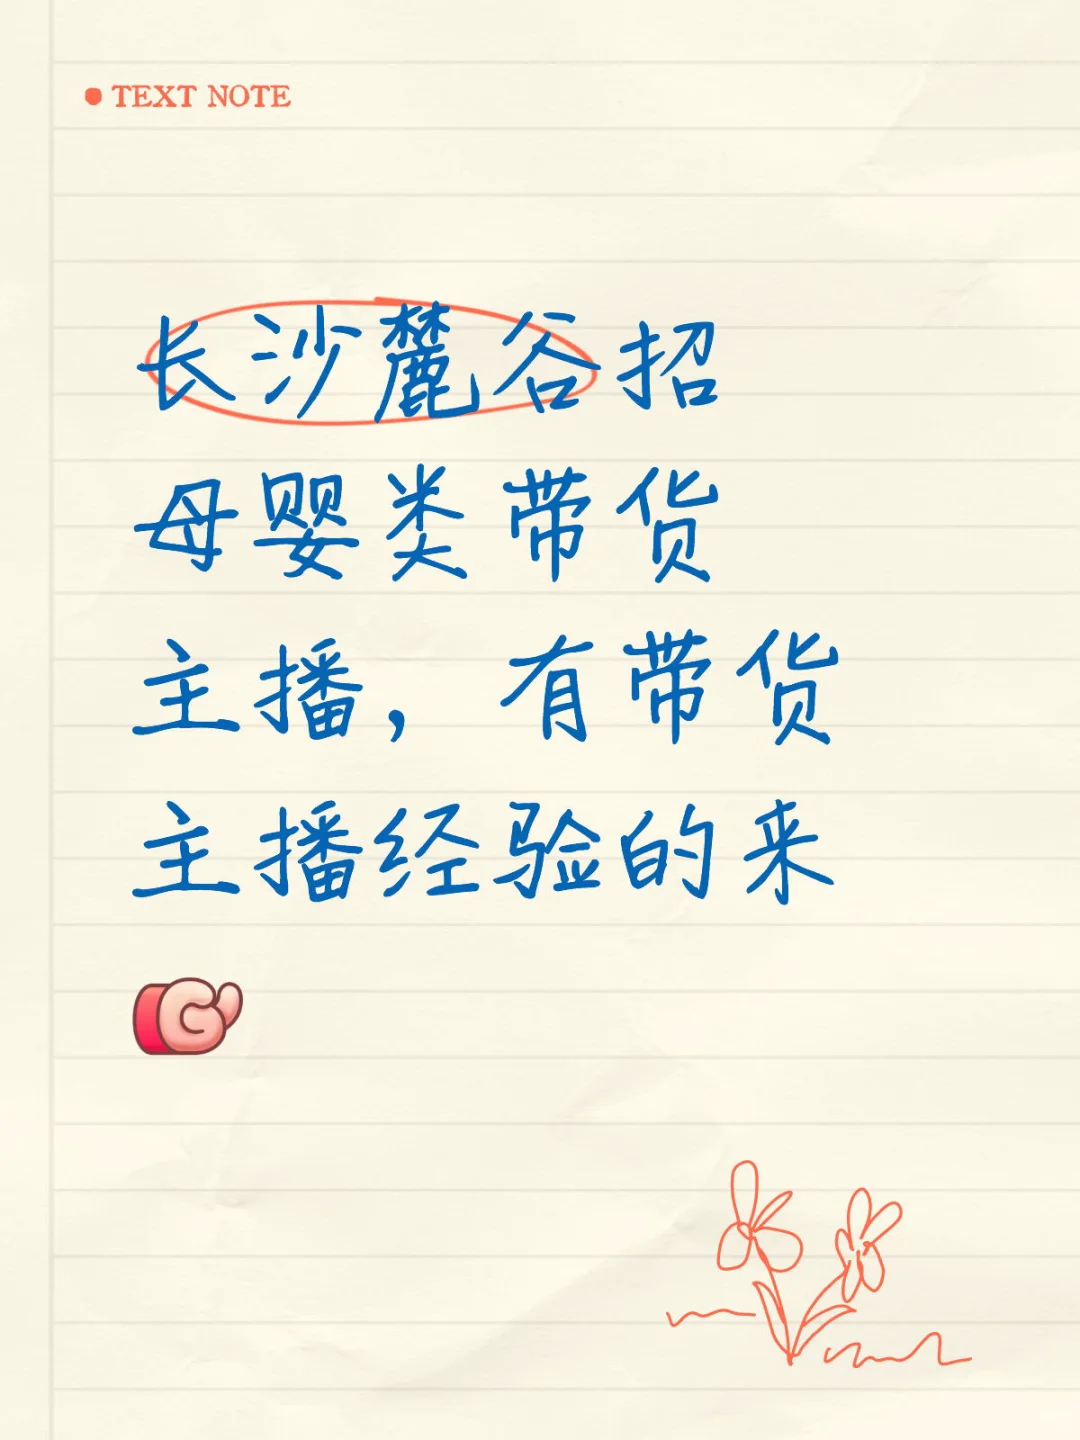 TEXT NOTE
长沙麓谷招
母婴类带货
主播，有带货
主播经验的来